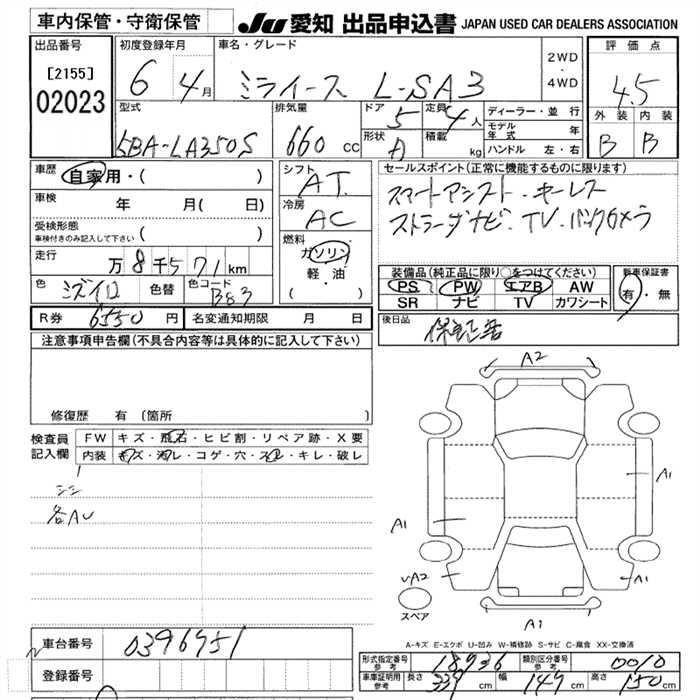 車内保管・守衛保管 JU 愛知 出品申込書 JAPAN USED CAR DEALERS ASSOCIATION
出品番号 初度登録年月 車名・グレード 2WD ・ 4WD 評価点
[2155] 6 4月 ミライース L-SA3 4.5
02023
型式 排気量 ドア 5 定員 4人 ディーラー・並行 外装 内装
5BA-LA350S 660 cc 形状 A 積載 kg モデル年式 年 B B
ハンドル 左・右
車歴 自家用・( ) シフト AT セールスポイント(正常に機能するものに限ります)
車検 年 月( 日) 冷房 AC スマートアシスト・キーレス
受検形態 車検付きのみ記入して下さい ( ) ストラーダナビ・TV・バックカメラ
走行 万8千571km 燃料 ガソリン 軽・油 ( ・ )
装備品(純正品に限り○をつけてください) 新車保証書
色 ミズイロ 色替 色コード B83 PS PW エアB AW 有・無
SR ナビ TV カワシート
R券 6550円 名変通知期限 月 日 後日品 保証書
注意事項申告欄(不具合内容等は具体的に記入して下さい)
修復歴 有(箇所
検査員記入欄 FW キズ・飛石・ヒビ割・リペア跡・X要
内装 キズ・汚レ・コゲ・穴・スレ・キレ・破レ
シミ
各AU
A2
A1
A1
A1
A2
スペア
A1
A-キズ E-エクボ U-凹み W-補修跡 S-サビ C-腐食 XX-交換済
車台番号 0396951
登録番号
形式指定番号 参考 18936 類別区分番号 参考 0010
車庫証明用 参考 長さ 339cm 幅 147cm 高さ 150cm